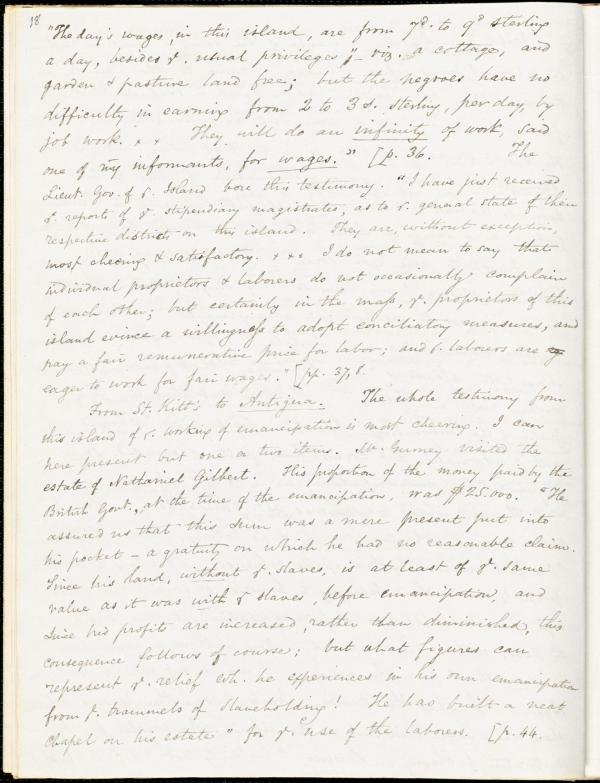 18
"The day's wages, in this island, are from 7d. to 9d sterling
a day, besides ye. usual privileges," – viz. a cottage, and
garden & pasture land free; but the negroes have no
difficulty in earning from 2 to 3 s. sterling, per day, by
job work. x x They will do an infinity of work, said
one of my informants, for wages." [p. 36. The
Lieut. Gov. of ye. Island bore this testimony. "I have just received
ye. reports of ye. stipendiary magistrates, as to ye. general state of their
respective districts on this island. They are, without exception,
most cheering & satisfactory. x x x I do not mean to say that
individual proprietors & laborers do not occasionally complain
of each other; but certainly in the mass, ye. proprietors of this
island evince a willingness to adopt conciliatory measures, and
pay a fair remunerative price for labor; and ye. laborers are
eager to work for fair wages." [pp. 37,8.
From St. Kitt's to Antigua. The whole testimony from
this island of ye. working of emancipation is most cheering. I can
here present but one or two items. Mr. Gurney visited the
estate of Nathaniel Gilbert. His proportion of the money paid by the
British Govt., at the time of the emancipation, was $25.000. "He
assured us that this sum was a mere present put into
his pocket – a gratuity on which he had no reasonable claim.
Since his land, without ye. slaves, is at least of ye. same
value as it was with ye slaves, before emancipation, and
since his profits are increased, rather than diminished, this
consequence follows of course; but what figures can
represent ye. relief wh. he experiences in his own emancipation
from ye. trammels of slaveholding! He has built a neat
chapel on his estate" for ye. use of the laborers. [p. 44.